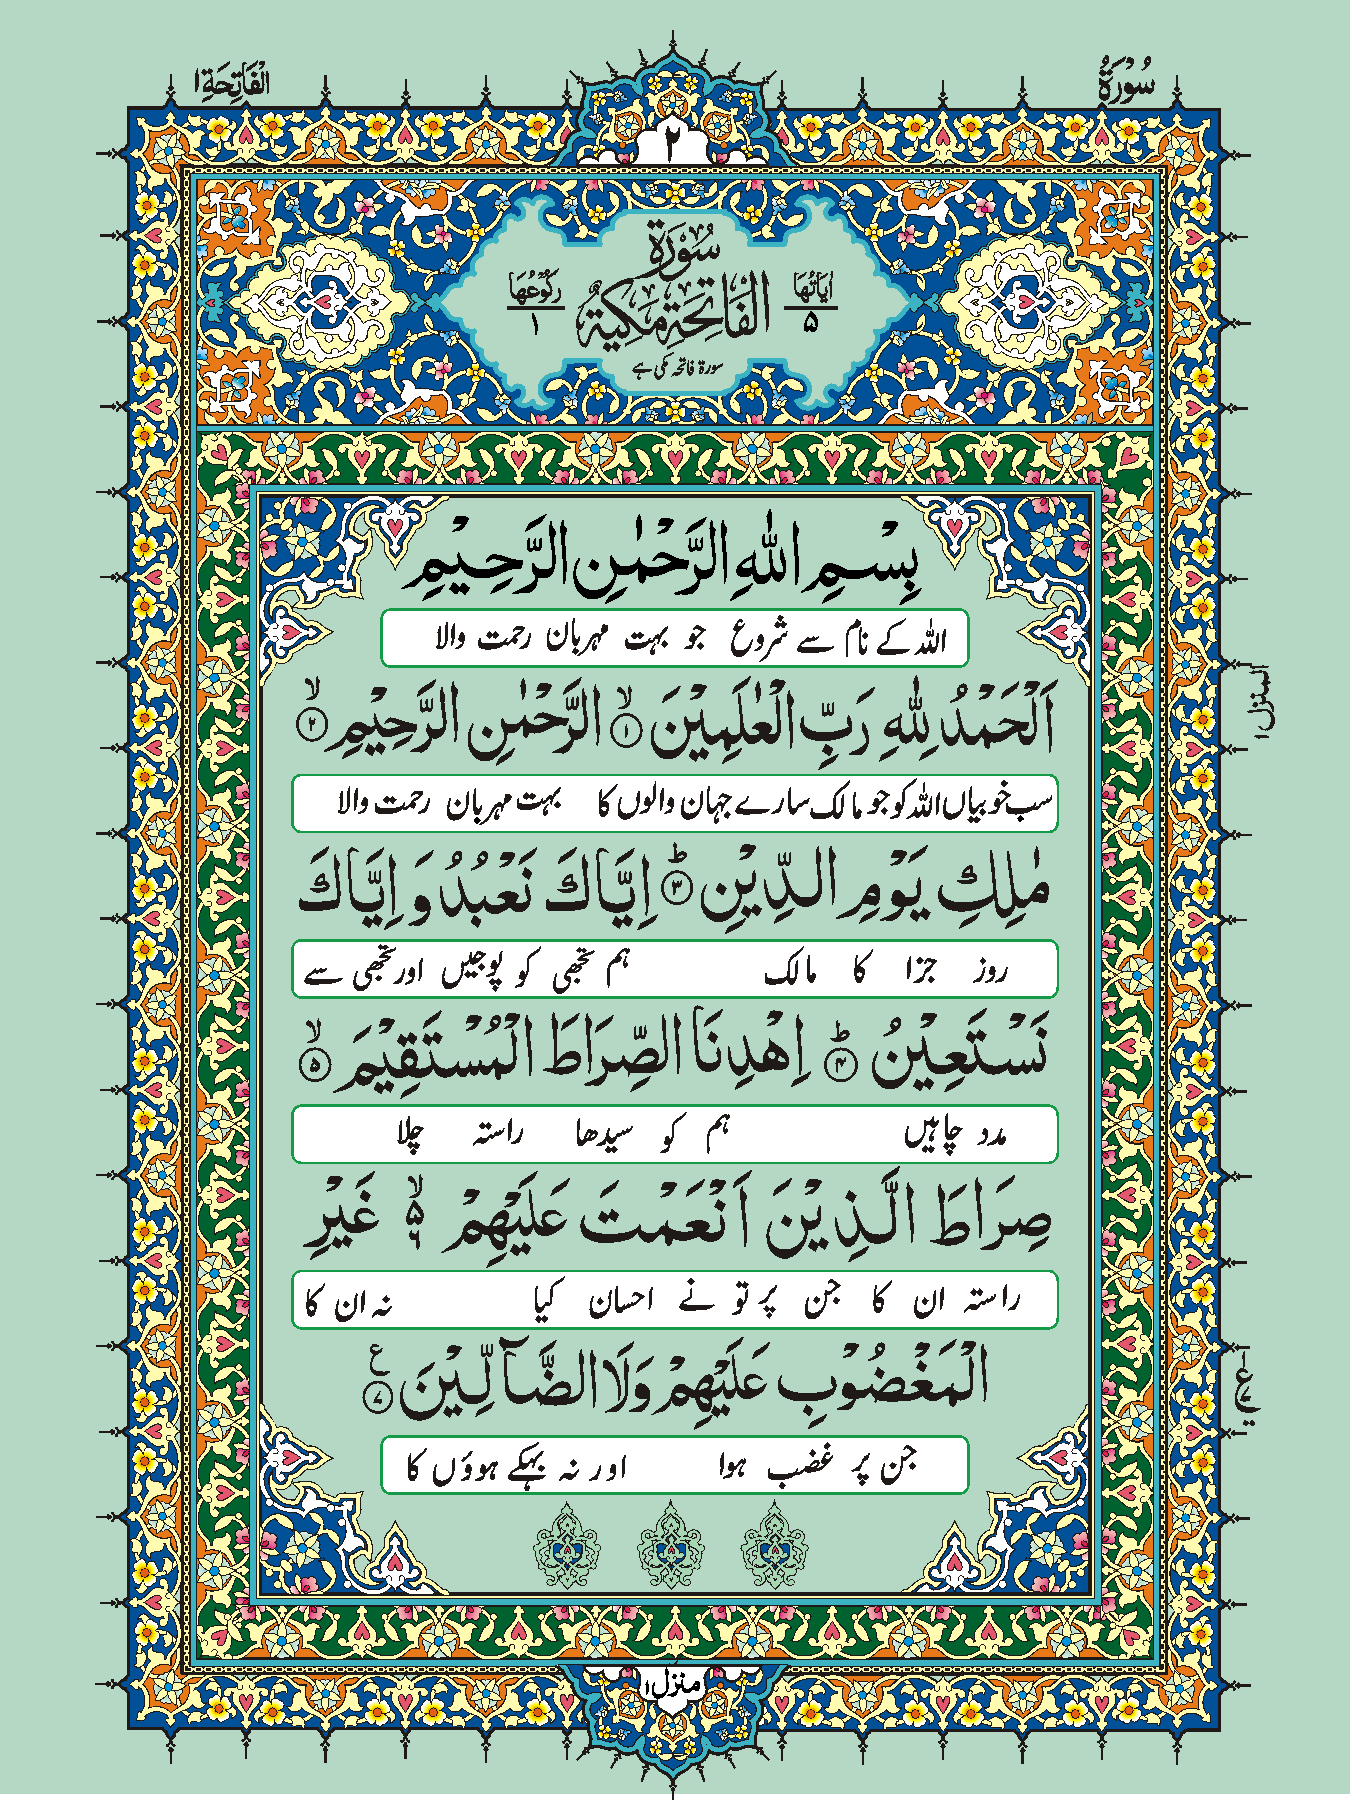 سُوْرَةُ
الْفَاتِحَة ١
٢
سُوْرَةُ
اٰيَاتُهَا ٥
الْفَاتِحَةِ مَكِّيَّةٌ
رُكُوْعُهَا ١
سورۃ فاتحہ مکی ہے
بِسْمِ اللّٰهِ الرَّحْمٰنِ الرَّحِيْمِ
اللہ کے نام سے شروع جو بہت مہربان رحمت والا
اَلْحَمْدُ لِلّٰهِ رَبِّ الْعٰلَمِيْنَ ۙ‏﴿۱﴾ الرَّحْمٰنِ الرَّحِيْمِ ۙ‏﴿۲﴾
سب خوبیاں اللہ کو جو مالک سارے جہان والوں کا بہت مہربان رحمت والا
مٰلِكِ يَوْمِ الدِّيْنِ ؕ‏﴿۳﴾ اِيَّاكَ نَعْبُدُ وَ اِيَّاكَ
روز جزا کا مالک ہم تجھی کو پوجیں اور تجھی سے
نَسْتَعِيْنُ ؕ‏﴿۴﴾ اِهْدِنَا الصِّرَاطَ الْمُسْتَقِيْمَ ۙ‏﴿۵﴾
مدد چاہیں ہم کو سیدھا راستہ چلا
صِرَاطَ الَّذِيْنَ اَنْعَمْتَ عَلَيْهِمْ ۙ ۵ ۶ غَيْرِ
راستہ ان کا جن پر تو نے احسان کیا نہ ان کا
الْمَغْضُوْبِ عَلَيْهِمْ وَلَا الضَّآلِّيْنَ ﴿۷﴾ ع
جن پر غضب ہوا اور نہ بہکے ہوؤں کا
المنزل ١
منزل ١